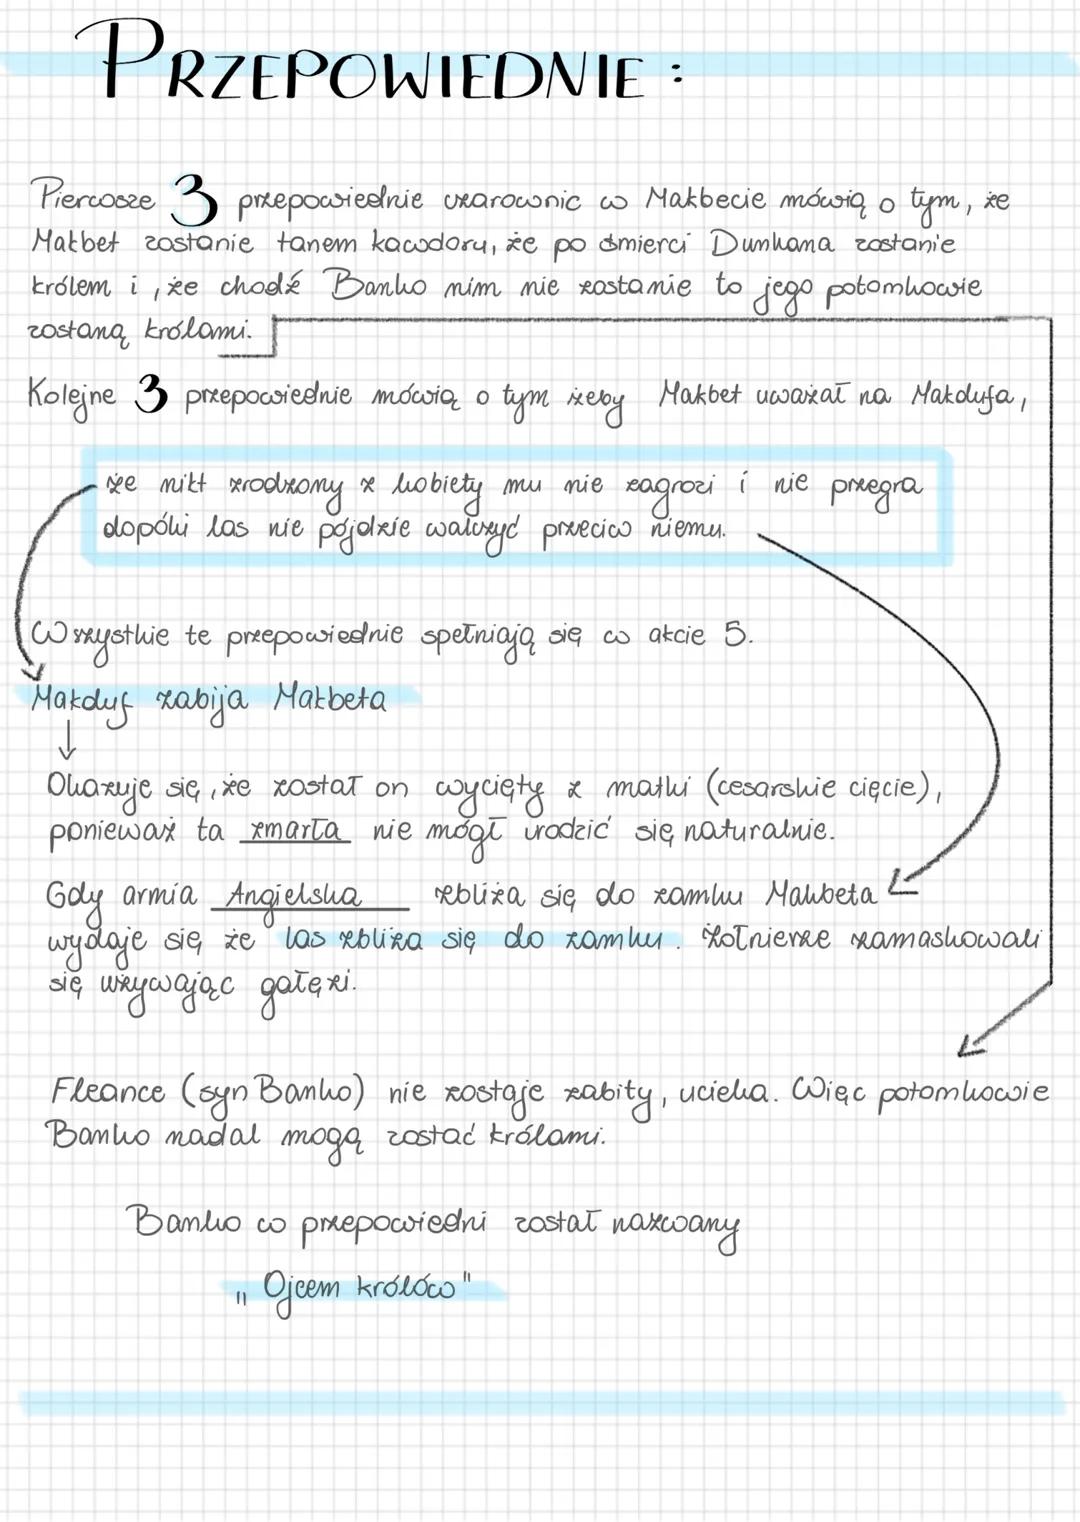 PRZEPOWIEDNIE:
Pierwsze 3 przepowiednie czarownic w Makbecie mówią o tym, że
Makbet zostanie tanem kawdoru, że po śmierci Dunkana zostanie
królem i, że chodź Banko nim nie zostanie to jego potomkowie
zostaną królami.
Kolejne 3 przepowiednie mówią o tym żeby Makbet uważał na Makdufa,
że nikt zrodzony z kobiety mu nie zagrozi i nie przegra
dopóki las nie pójdzie walczyć przeciw niemu.
Wszystkie te przepowiednie spełniają się w akcie 5.
Makduf zabija Makbeta
Okazuje się, że został on wycięty z matki (cesarskie cięcie),
ponieważ ta zmarła nie mógł urodzić się naturalnie.
Gdy armia Angielska zbliża się do zamku Makbeta
wydaje się że las zbliża się do zamku. Żołnierze zamaskowali
się używając gałęzi.
Fleance (syn Banko) nie zostaje zabity, ucieka. Więc potomkowie
Banko nadal mogą zostać królami.
Banko w przepowiedni został nazwany
„Ojcem królów"